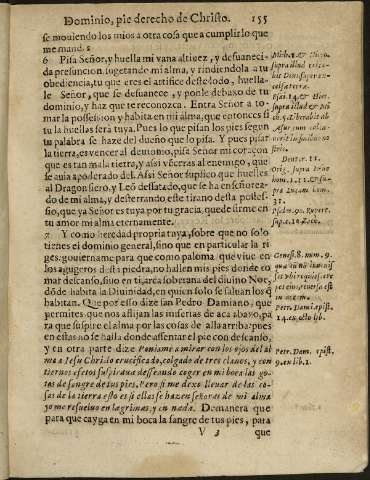 Dominio, pie derecho de Christo. 155
se mouiendo los mios a otra cosa que a cumplir lo que
me mandas
6 Pisa Señor, y huella mi vana altiuez, y desuaneci-
da presuncion, sugetando mi alma, y rindiendola a tu
obediencia, tu que eres el artifice deste lodo, huella-
le Señor, que se desuanece, y ponle debaxo de tu
dominio, y haz que te reconozca. Entra Señor a to-
mar la possession y habita en mi alma, que entonces si
tu la huellas serà tuya. Pues lo que pisan los pies segun
tu palabra se haze del dueño que lo pisa. Y pues pisar
la tierra, es vencer al demonio, pisa Señor mi coraçon
que es tan mala tierra, y assi vẽceras al enemigo, que
se auia apoderado del. Assi Señor suplico que huelles
al Dragon fiero, y Leõ desatado, que se ha enseñorea-
do de mi alma, y desterrando este tirano desta posses-
sion, que ya Señor es tuya por tu gracia, quede firme en
tu amor mi alma eternamente.
7 Y como heredad propria tuya, sobre que no solo
tienes el dominio general, sino que en particular la ri
ges, gouiername para que como paloma que viue en
los agugeros desta piedra, no hallen mis pies donde to
mar descanso, sino en ti, arca soberana del diuino Noe,
dõde habita la Diuinidad, en quien solo se saluan los q̃
habitan. Que por esso dize san Pedro Damiano, que
permites que nos aflijan las miserias de aca abaxo, pa
ra que suspire el alma por las cosas de alla arriba pues
en estas no se halla donde assentar el pie con descanso,
y en otra parte dize Poniame a mirar con los ojos del al
ma a Jesu Christo crucificado, colgado de tres clauos, y con
tiernos afetos suspiraua desseando coger en mi boca las go-
tas de sangre de tus pies. Pero si me dexo lleuar de las co-
sas de la tierra esto es si ellas se hazen señoras de mi alma
yo me resueluo en lagrimas, y en nada. Demanera que
para que cayga en mi boca la sangre de tus pies, para
V 3 que
supra illud
Deut. 11.
Orig. supra Iesu
31.
Genes. 8. num. 9.
Petr. Dam. epist.
Petr. Dam. epist.
9. ex lib. 1.